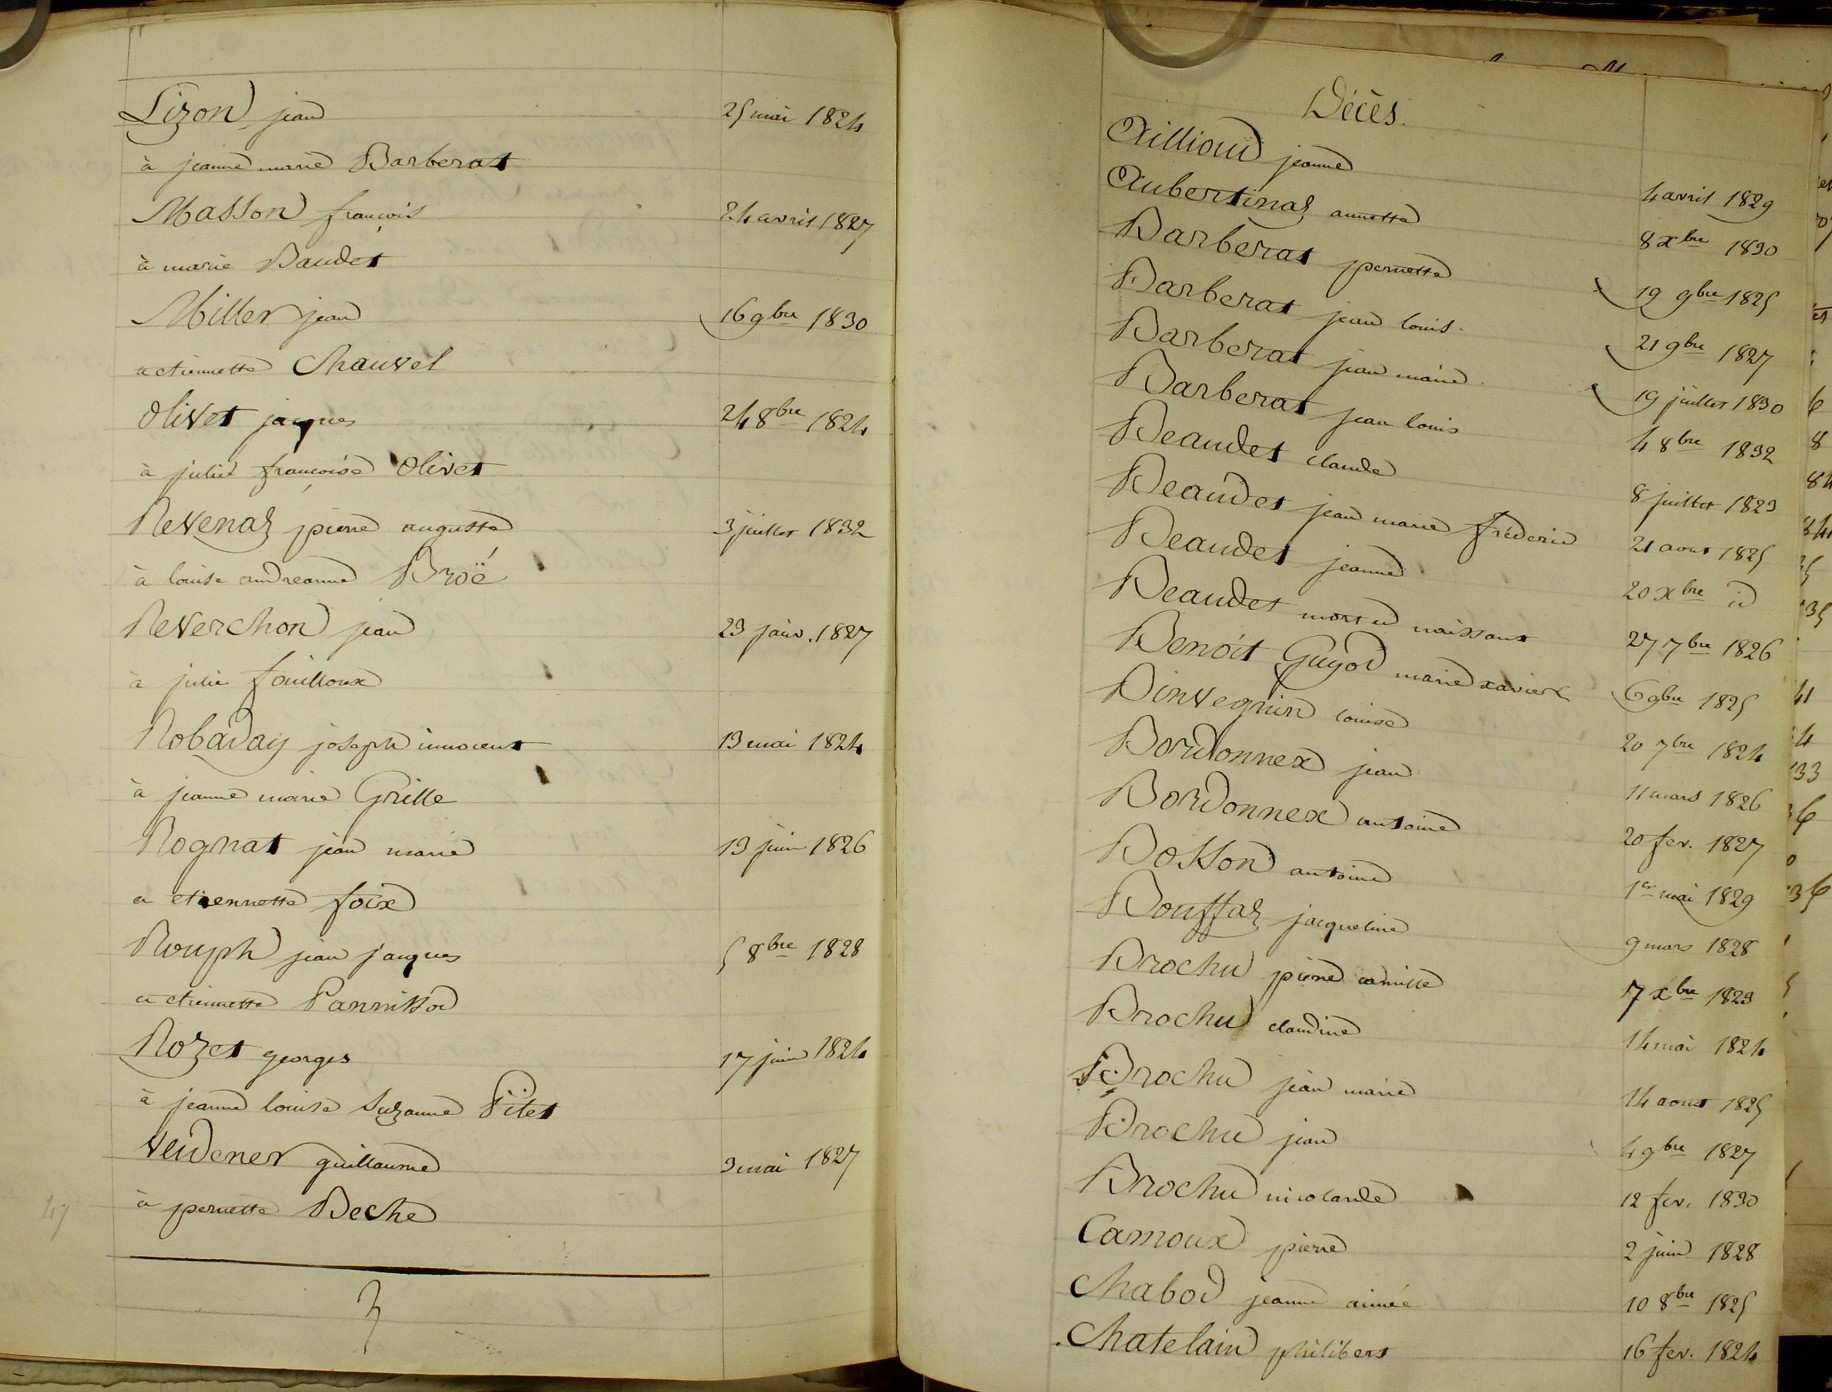 Lizon jean 25 mai 1824
à jeanne marie Barberat
Masson françois 24 avril 1827
à marie Baudet
Miller jean 16 9bre 1830
a etiennette Chauvet
Olivet jacques 24 8bre 1824
à julie françoise Olivet
Revenaz pierre auguste 3 juillet 1832
à louise andreanne Broë
Reverchon jean 23 janv. 1827
à julie fouilloux
Robaday joseph innocent 13 mai 1824
à jeanne marie Grille
Rognat jean marie 13 juin 1826
a etiennette foix
Rouph jean jacques 5 8bre 1828
a etiennette Pannissod
Rozet georges 17 juin 1824
à jeanne louise Suzanne Pitet
Veidener guillaume 3 mai 1827
à pernette Beche
Décès.
Ailloud jeanne 4 avril 1829
Aubertinaz annette 8 xbre 1830
Barberat pernette 19 9bre 1825
Barberat jean louis. 21 9bre 1827
Barberat jean marie 19 juillet 1830
Barberat jean louis 4 8bre 1832
Beaudet claude 8 juillet 1823
Beaudet jean marie fréderic 21 aout 1825
Beaudet jeanne 20 xbre id
Beaudet mort en naissant 27 7bre 1826
Benoit Guyod marie xavier 6 9bre 1825
Binvegnin louise 20 7bre 1824
Bordonnex jean 11 mars 1826
Bordonnex antoine 20 fev. 1827
Bosson antoine 1er mai 1829
Bouffaz jacqueline 9 mars 1828
Brochu pierre camille 7 xbre 1823
Brochu claudine 14 mai 1824
Brochu jean marie 14 aout 1825
Brochu jean 4 9bre 1827
Brochu nicolarde 12 fev. 1830
Camoux pierre 2 juin 1828
Chabod jeanne aimée 10 8bre 1825
Chatelain philibert 16 fev. 1824